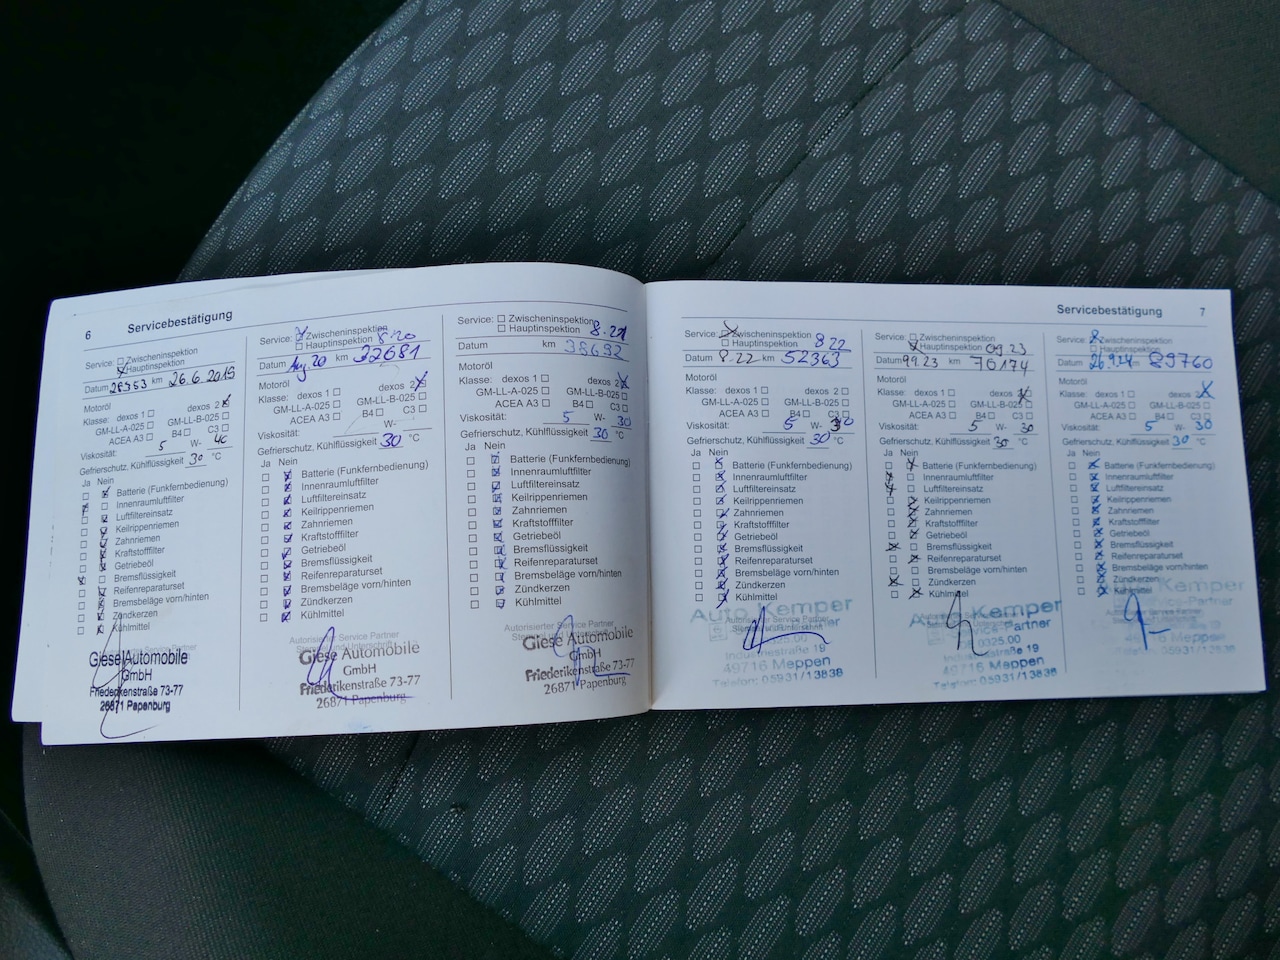 6 Servicebestätigung
Service: Zwischeninspektion
Hauptinspektion
Datum 28953 km 26.6.2019
Motoröl
dexos 1 dexos 2
GM-LL-A-025 GM-LL-B-025
ACEA A3 B4 C3
Viskosität: 5 W- 40
Gefrierschutz, Kühlflüssigkeit 30 °C
Ja Nein
Batterie (Funkfernbedienung)
Innenraumluftfilter
Luftfiltereinsatz
Keilrippenriemen
Zahnriemen
Kraftstofffilter
Getriebeöl
Bremsflüssigkeit
Reifenreparaturset
Bremsbeläge vorn/hinten
Zündkerzen
Kühlmittel
Giese Automobile
GmbH
Friederikenstraße 73-77
26871 Papenburg
Service: Zwischeninspektion
Hauptinspektion 8.20
Datum Aug.20 km 32681
Motoröl
Klasse: dexos 1 dexos 2
GM-LL-A-025 GM-LL-B-025
ACEA A3 B4 C3
Viskosität: W-
Gefrierschutz, Kühlflüssigkeit 30 °C
Ja Nein
Batterie (Funkfernbedienung)
Innenraumluftfilter
Luftfiltereinsatz
Keilrippenriemen
Zahnriemen
Kraftstofffilter
Getriebeöl
Bremsflüssigkeit
Reifenreparaturset
Bremsbeläge vorn/hinten
Zündkerzen
Kühlmittel
Autorisierter Service Partner
Giese Automobile
GmbH
Friederikenstraße 73-77
26871 Papenburg
Service: Zwischeninspektion
Hauptinspektion 8.21
Datum km 38692
Motoröl
Klasse: dexos 1 dexos 2
GM-LL-A-025 GM-LL-B-025
ACEA A3 B4 C3
Viskosität: 5 W- 30
Gefrierschutz, Kühlflüssigkeit 30 °C
Ja Nein
Batterie (Funkfernbedienung)
Innenraumluftfilter
Luftfiltereinsatz
Keilrippenriemen
Zahnriemen
Kraftstofffilter
Getriebeöl
Bremsflüssigkeit
Reifenreparaturset
Bremsbeläge vorn/hinten
Zündkerzen
Kühlmittel
Autorisierter Service Partner
Giese Automobile
GmbH
Friederikenstraße 73-77
26871 Papenburg
Servicebestätigung 7
Service: Zwischeninspektion
Hauptinspektion 8.22
Datum 8.22 km 52363
Motoröl
Klasse: dexos 1 dexos 2
GM-LL-A-025 GM-LL-B-025
ACEA A3 B4 C3
Viskosität: 5 W- 30
Gefrierschutz, Kühlflüssigkeit 30 °C
Ja Nein
Batterie (Funkfernbedienung)
Innenraumluftfilter
Luftfiltereinsatz
Keilrippenriemen
Zahnriemen
Kraftstofffilter
Getriebeöl
Bremsflüssigkeit
Reifenreparaturset
Bremsbeläge vorn/hinten
Zündkerzen
Kühlmittel
Auto Kemper
Autorisierter Service Partner
Industriestraße 19
49716 Meppen
Telefon: 05931/13838
Service: Zwischeninspektion
Hauptinspektion 09.23
Datum 99.23 km 70174
Motoröl
Klasse: dexos 1 dexos 2
GM-LL-A-025 GM-LL-B-025
ACEA A3 B4 C3
Viskosität: 5 W- 30
Gefrierschutz, Kühlflüssigkeit 30 °C
Ja Nein
Batterie (Funkfernbedienung)
Innenraumluftfilter
Luftfiltereinsatz
Keilrippenriemen
Zahnriemen
Kraftstofffilter
Getriebeöl
Bremsflüssigkeit
Reifenreparaturset
Bremsbeläge vorn/hinten
Zündkerzen
Kühlmittel
Auto Kemper
Service Partner
Industriestraße 19
49716 Meppen
Telefon: 05931/13838
Service: Zwischeninspektion
Hauptinspektion
Datum 26.9.24 89760
Motoröl
Klasse: dexos 1 dexos 2
GM-LL-A-025 GM-LL-B-025
ACEA A3 B4 C3
Viskosität: 5 W- 30
Gefrierschutz, Kühlflüssigkeit 30 °C
Ja Nein
Batterie (Funkfernbedienung)
Innenraumluftfilter
Luftfiltereinsatz
Keilrippenriemen
Zahnriemen
Kraftstofffilter
Getriebeöl
Bremsflüssigkeit
Reifenreparaturset
Bremsbeläge vorn/hinten
Zündkerzen
Kühlmittel
Kemper
Service Partner